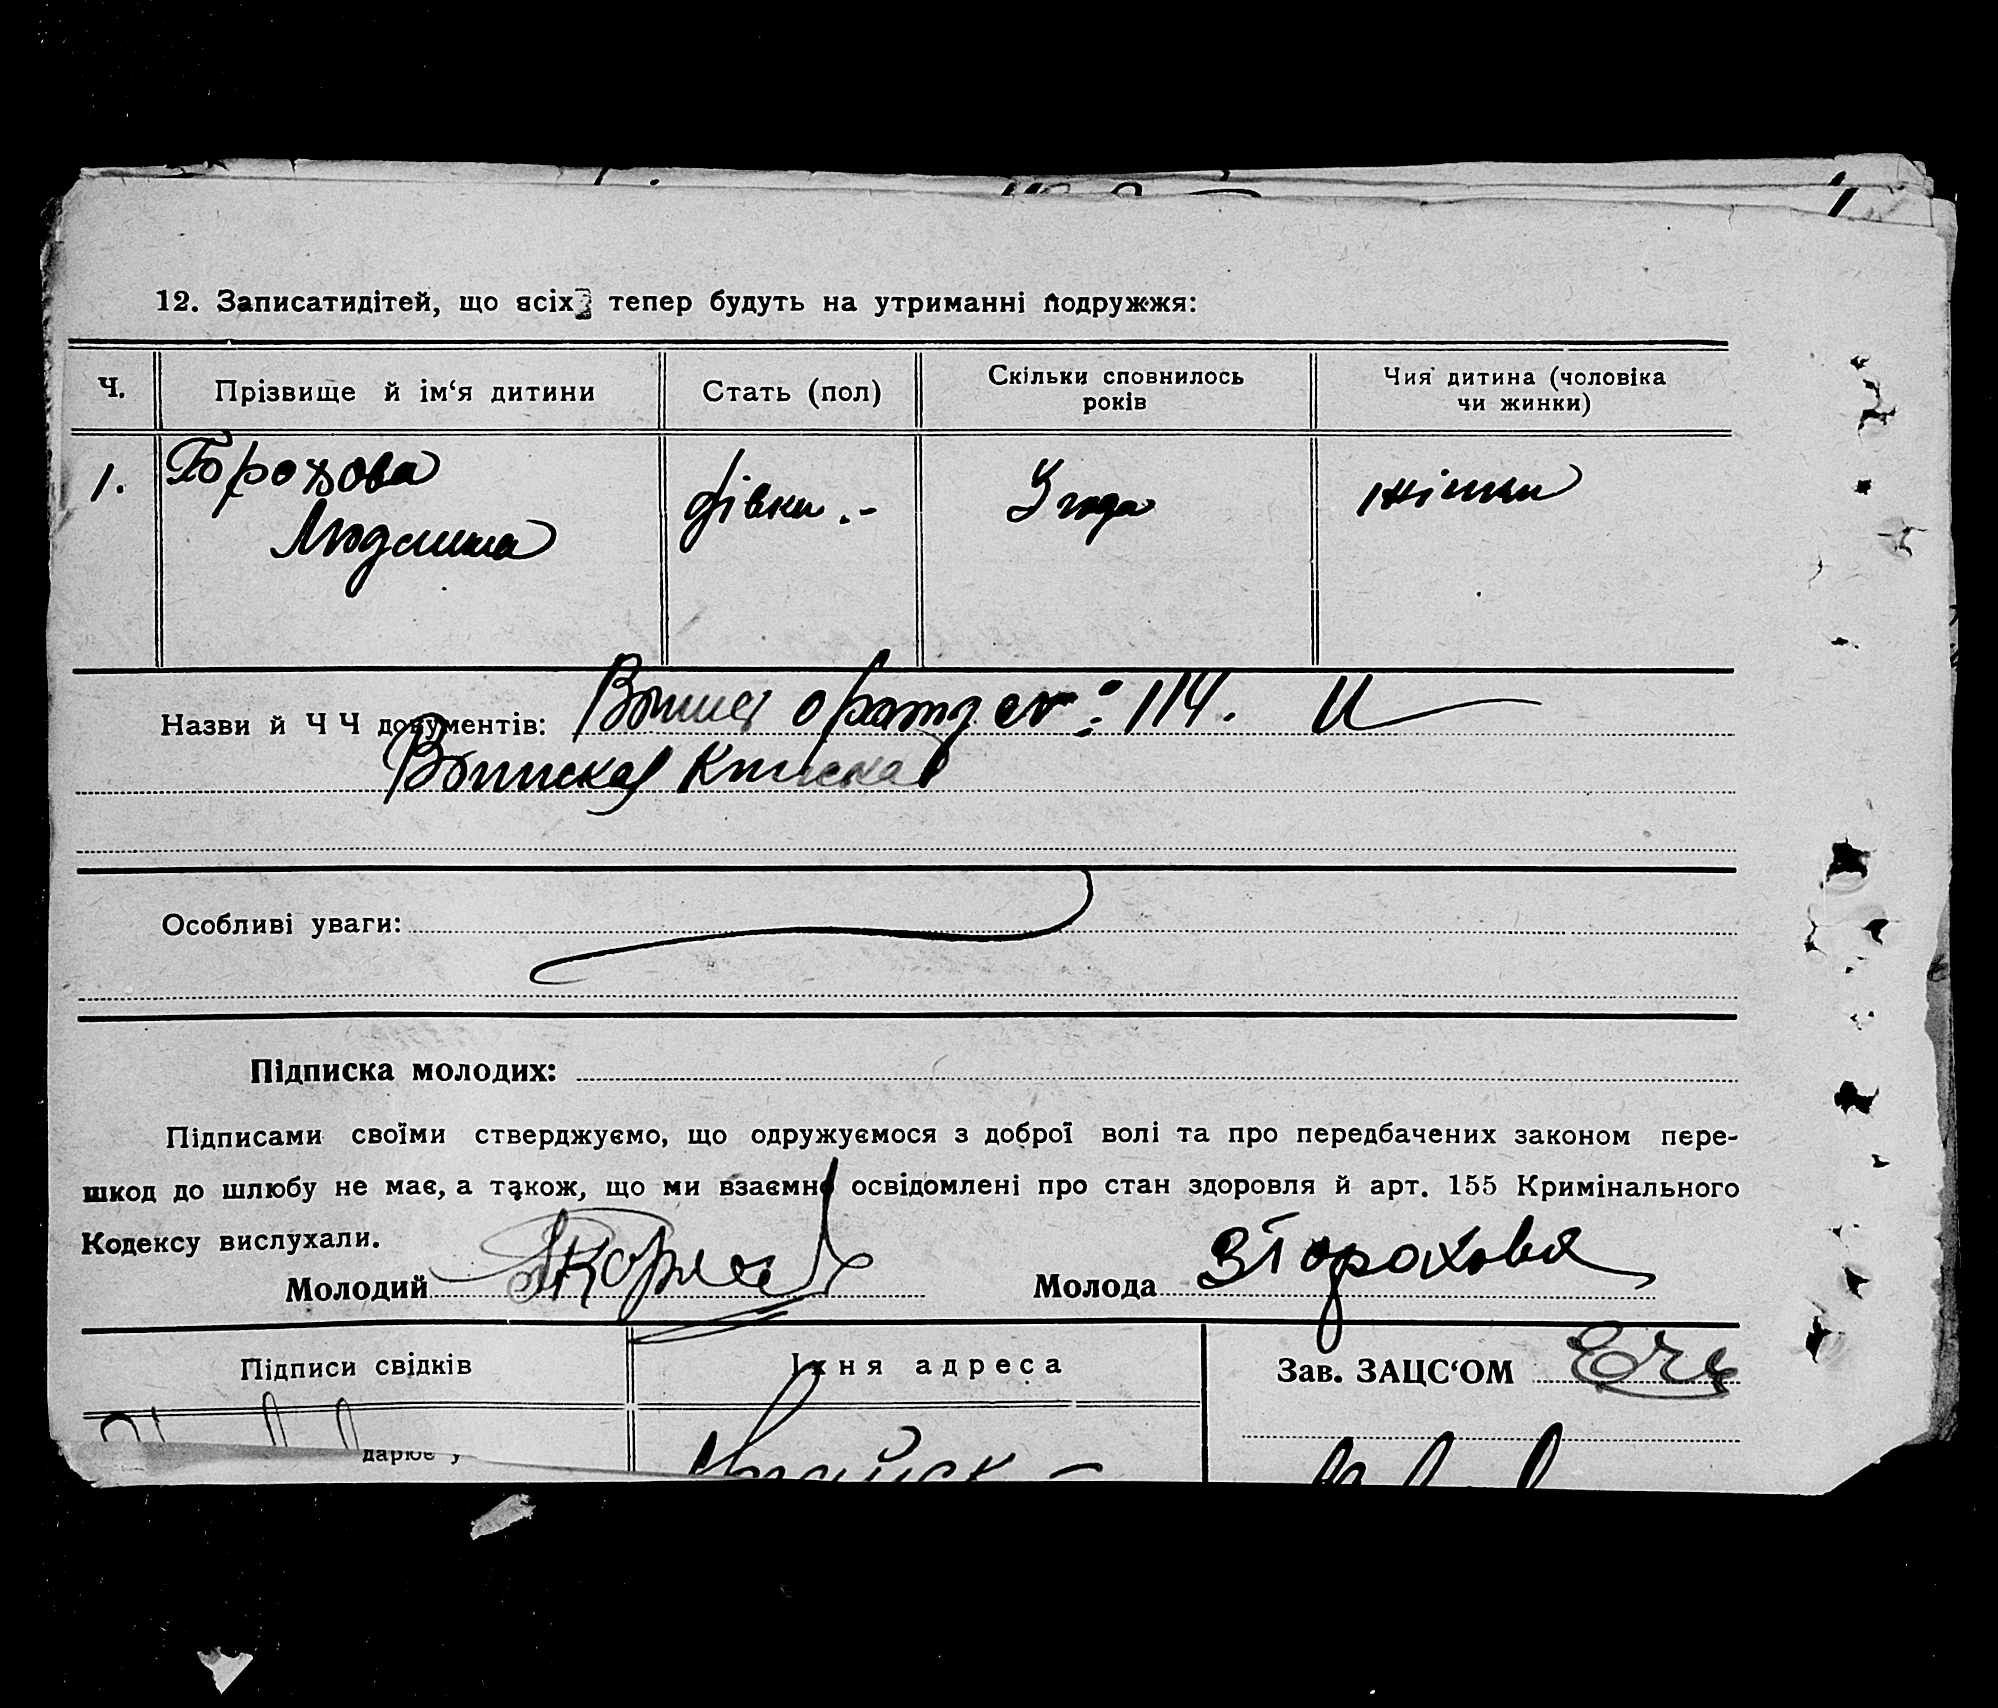 12. Записатидітей, що всіх тепер будуть на утриманні подружжя:
Ч.
Прізвище й ім‘я дитини
Стать (пол)
Скільки сповнилось
років
Чия дитина (чоловіка
чи жинки)
1.
Горохова
Людмила
дівки.-
3 года
жінки
Назви й Ч Ч документів: 114.
Виписка
Особливі уваги:
Підписка молодих:
Підписами своїми стверджуємо, що одружуємося з доброї волі та про передбачених законом пере-
шкод до шлюбу не має, а також, що ми взаємно освідомлені про стан здоровля й арт. 155 Кримінального
Кодексу вислухали.
Молодий
Молода ЗГорохова
Підписи свідків
Їхня адреса
Зав. ЗАЦС‘ОМ
дарює у